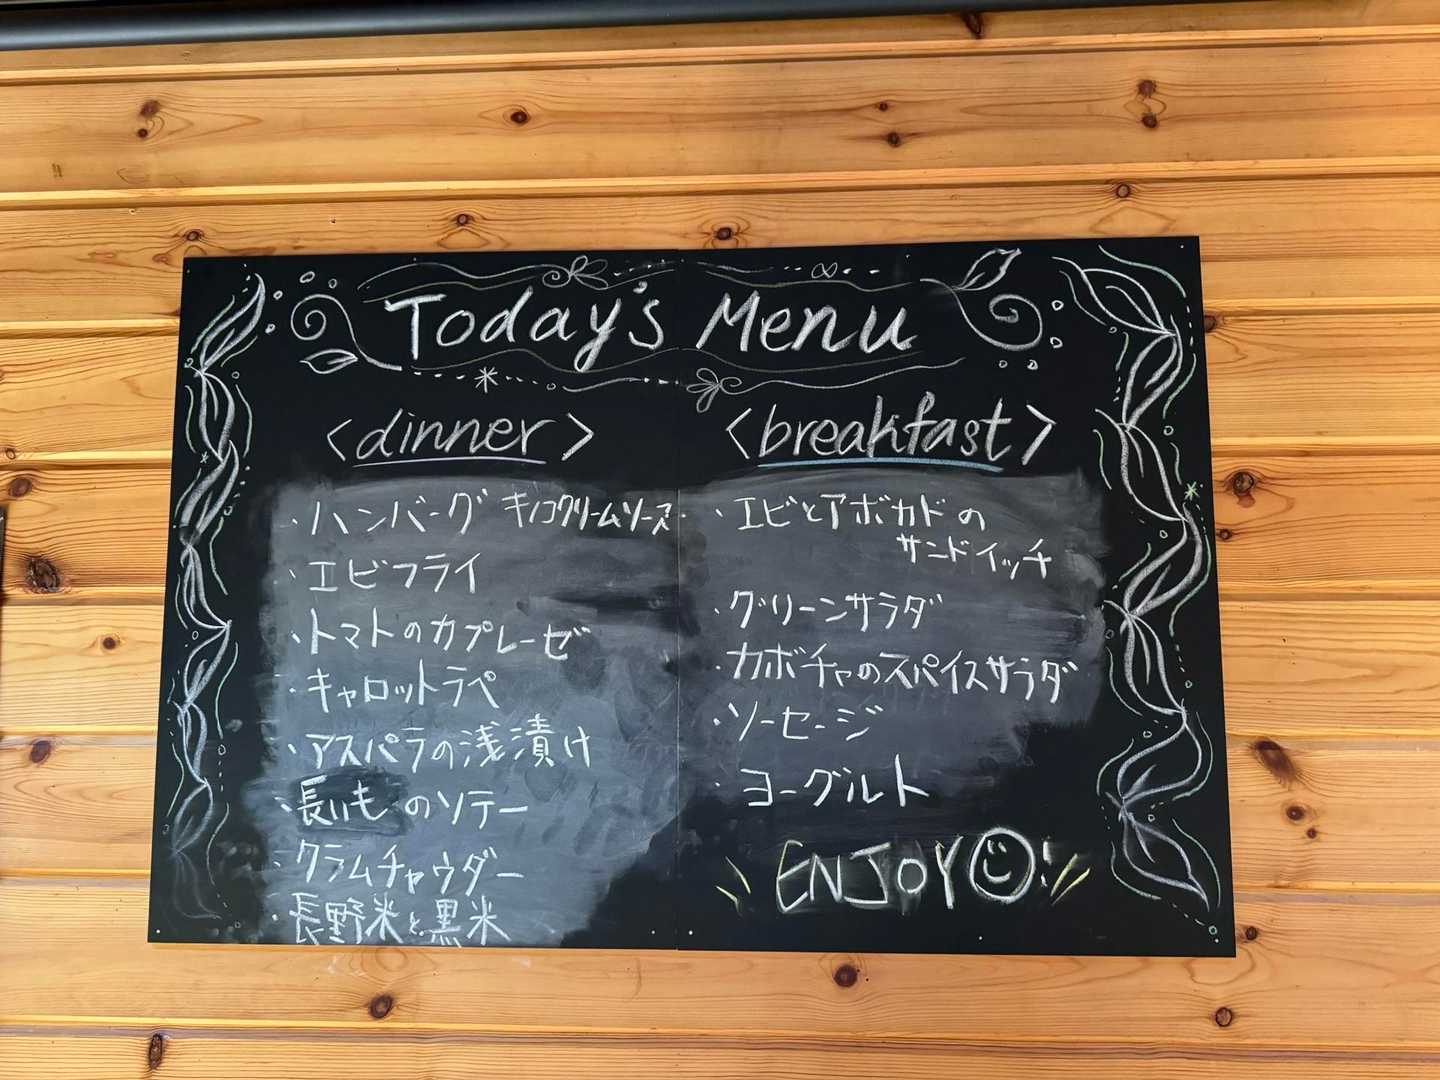 Today's Menu
<dinner>
・ハンバーグ キノコクリームソース
・エビフライ
・トマトのカプレーゼ
・キャロットラペ
・アスパラの浅漬け
・長いものソテー
・クラムチャウダー
・長野米と黒米
<breakfast>
・エビとアボカドの
サンドイッチ
・グリーンサラダ
・カボチャのスパイスサラダ
・ソーセージ
・ヨーグルト
ENJOY!